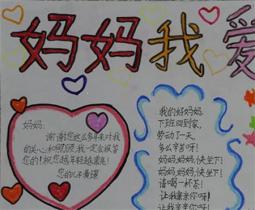 妈妈我爱
妈妈:
谢谢您这么多年来对我
的关心和照顾,我一定会报答
您的!祝您越年轻越漂亮!
我的好妈妈,
下班回到家,
劳动了一天,
多么辛苦呀!
妈妈,妈妈,快坐下!
妈妈,妈妈,快坐下!
请喝一杯茶!
让我亲亲你呀!